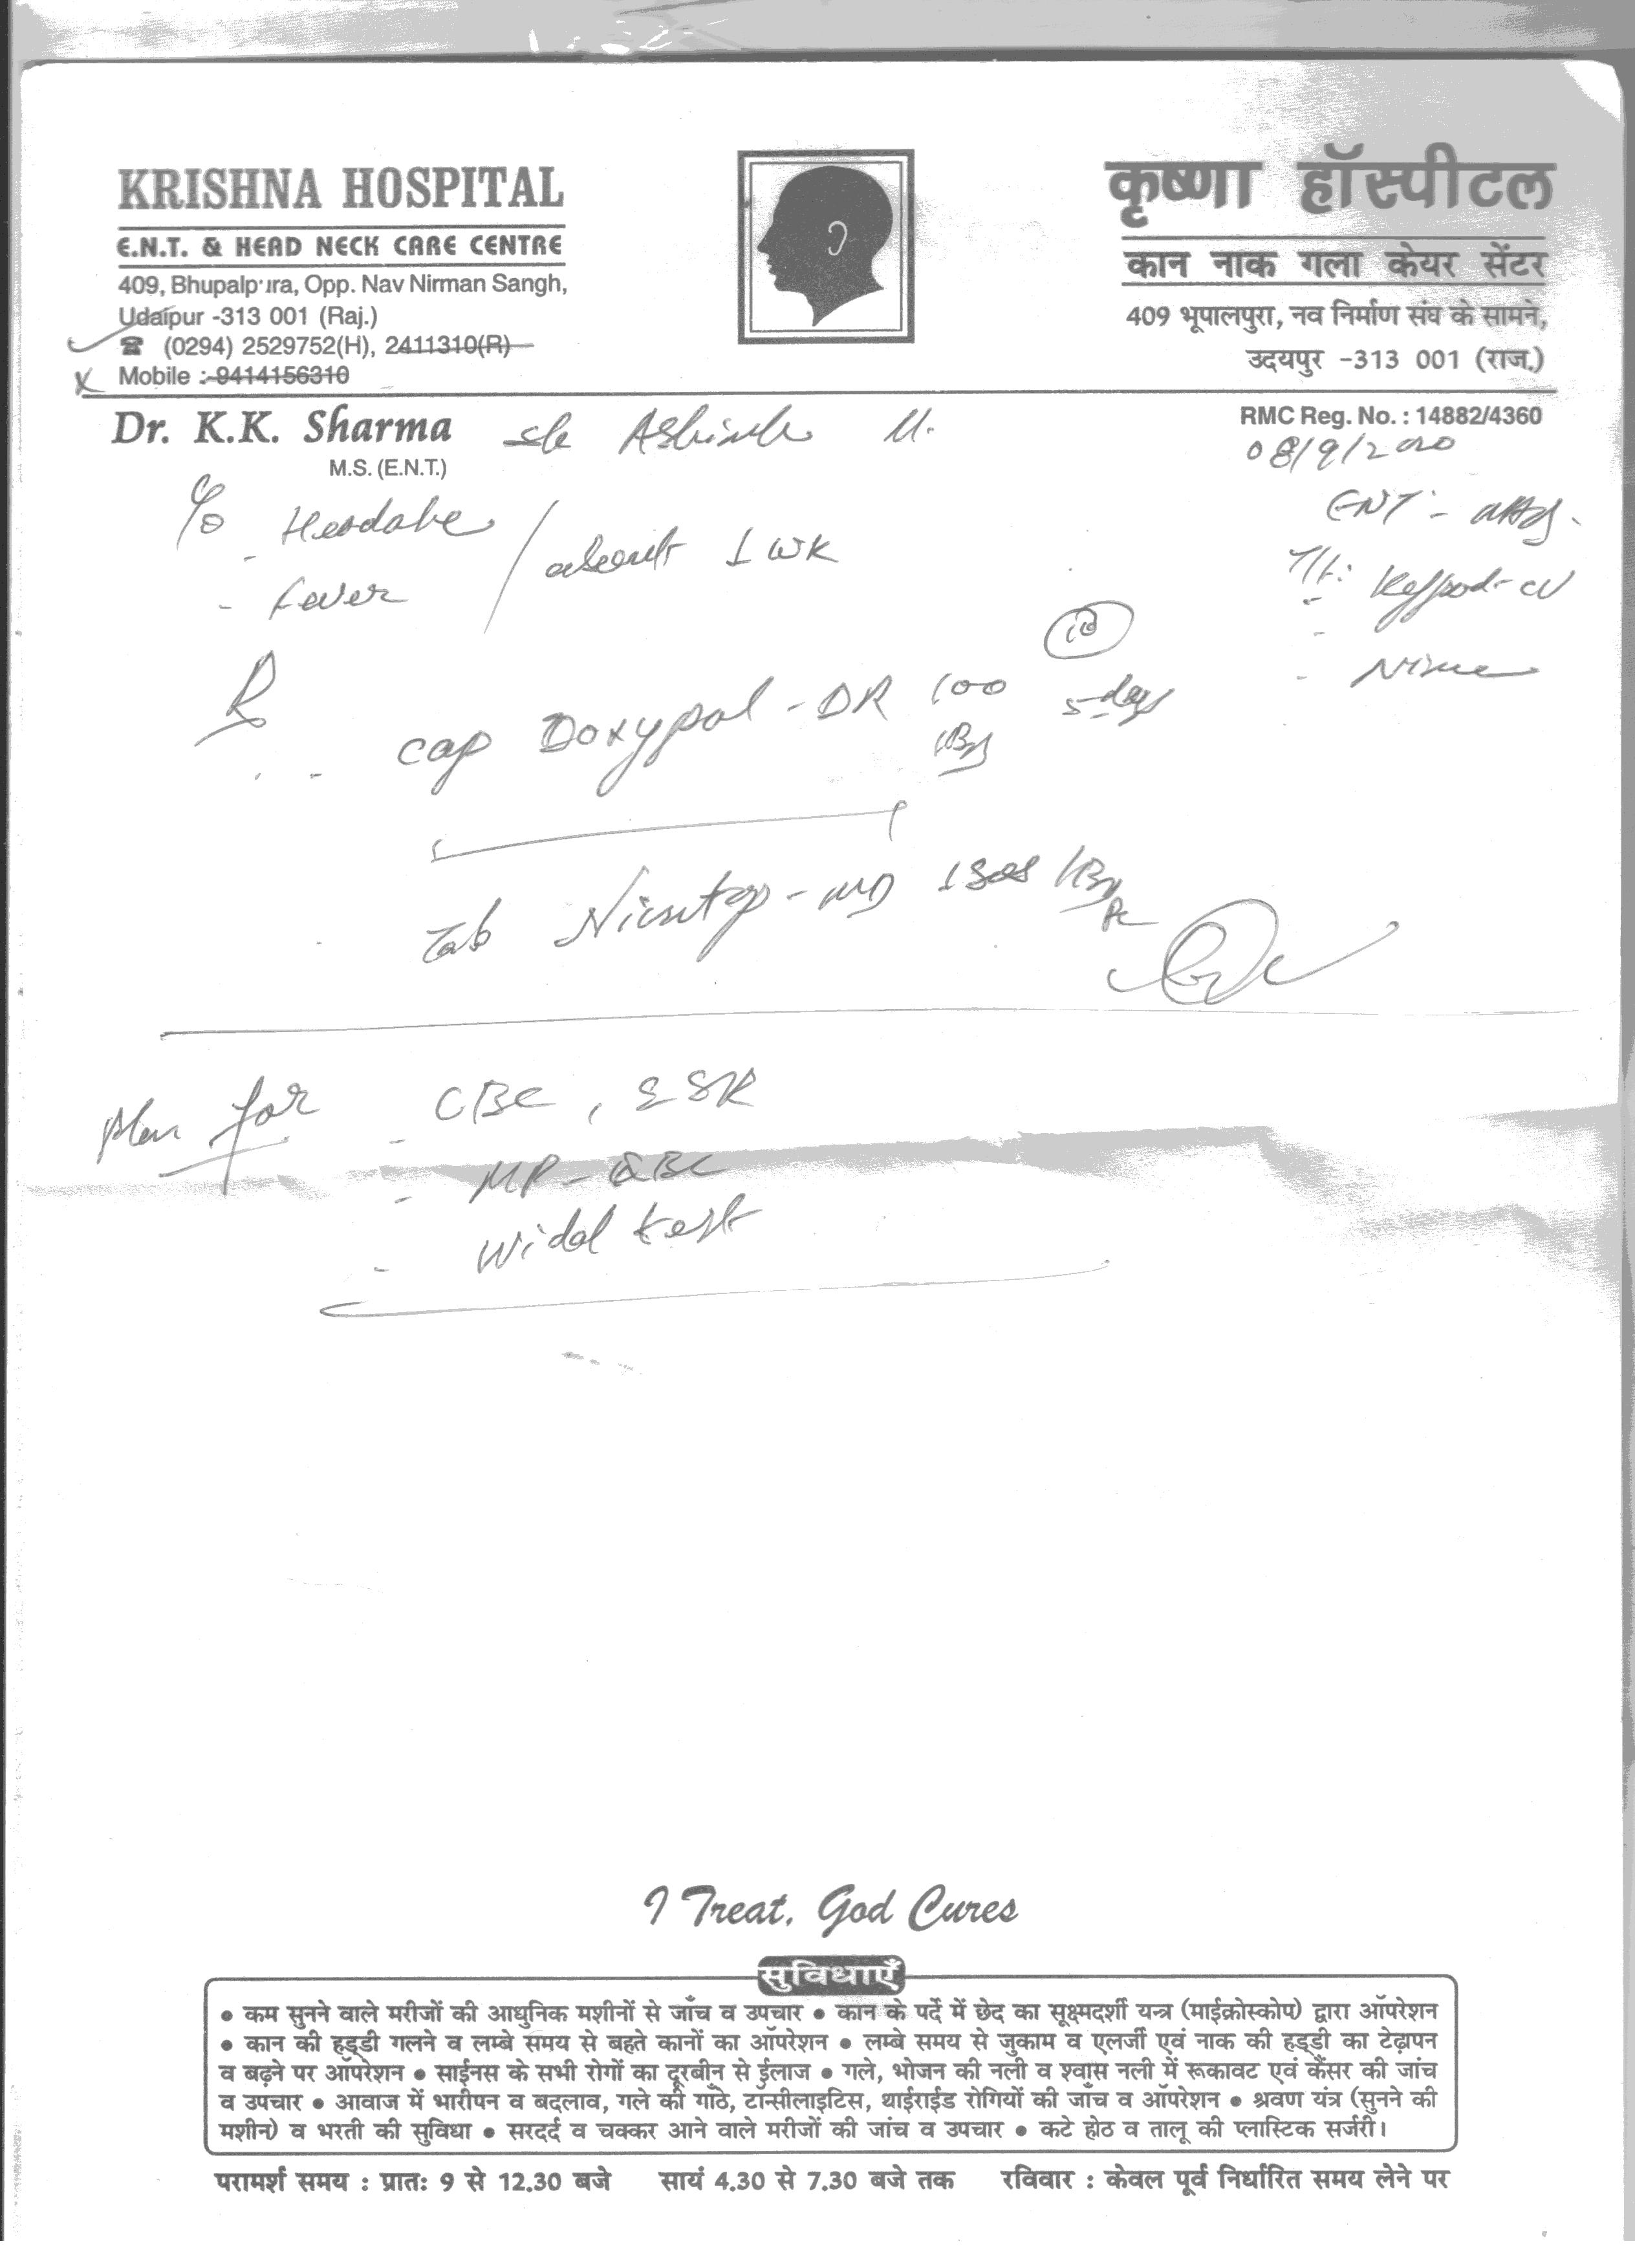 KRISHNA HOSPITAL
E.N.T. & HEAD NECK CARE CENTRE
409, Bhupalpura, Opp. Nav Nirman Sangh,
Udaipur -313 001 (Raj.)
☎ (0294) 2529752(H), 2411310(R)
Mobile : 9414156310
कृष्णा हॉस्पीटल
कान नाक गला केयर सेंटर
409 भूपालपुरा, नव निर्माण संघ के सामने,
उदयपुर -313 001 (राज.)
Dr. K.K. Sharma
M.S. (E.N.T.)
RMC Reg. No. : 14882/4360
C/o - Headache
- fever
about 1 WK
ENT :-
- Nime
R
10
- cap Doxypal - DR 100 5 days
1BD
Tab - MD
Plan for - CBC, ESR
- MP - QBC
- Widal test
I Treat, God Cures
सुविधाएँ
• कम सुनने वाले मरीजों की आधुनिक मशीनों से जाँच व उपचार • कान के पर्दे में छेद का सूक्ष्मदर्शी यन्त्र (माईक्रोस्कोप) द्वारा ऑपरेशन
• कान की हड्डी गलने व लम्बे समय से बहते कानों का ऑपरेशन • लम्बे समय से जुकाम व एलर्जी एवं नाक की हड्डी का टेढ़ापन
व बढ़ने पर ऑपरेशन • साईनस के सभी रोगों का दूरबीन से ईलाज • गले, भोजन की नली व श्वास नली में रूकावट एवं कैंसर की जांच
व उपचार • आवाज में भारीपन व बदलाव, गले की गाँठे, टॉन्सीलाइटिस, थाईराईड रोगियों की जाँच व ऑपरेशन • श्रवण यंत्र (सुनने की
मशीन) व भरती की सुविधा • सरदर्द व चक्कर आने वाले मरीजों की जांच व उपचार • कटे होठ व तालू की प्लास्टिक सर्जरी।
परामर्श समय : प्रातः 9 से 12.30 बजे सायं 4.30 से 7.30 बजे तक रविवार : केवल पूर्व निर्धारित समय लेने पर